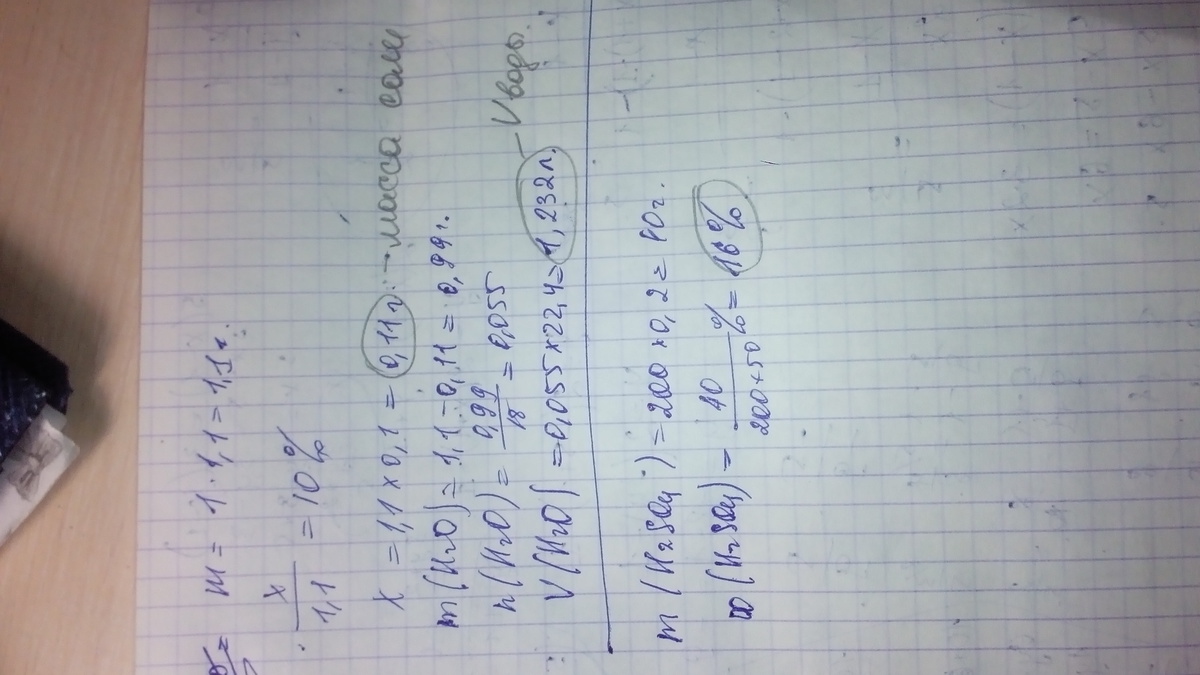 m = 1 · 1,1 = 1,1г.
x/1,1 = 10%
x = 1,1 x 0,1 = 0,11г. - масса соли
m(H₂O) = 1,1 - 0,11 = 0,99г.
n(H₂O) = 0,99/18 = 0,055
V(H₂O) = 0,055 x 22,4 = 1,232л. - V воды.
m(H₂SO₄) = 200 x 0,2 = 40г.
ω(H₂SO₄) = 40/200+50 % = 16%